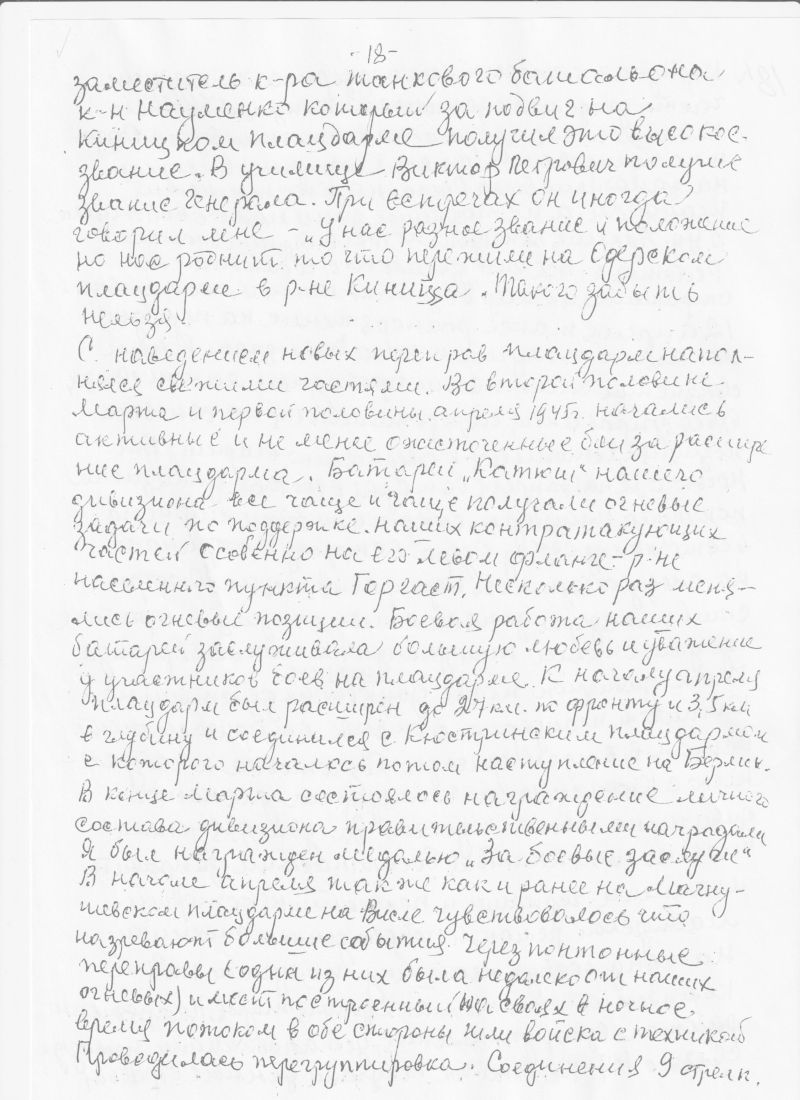 -18-
заместитель к-ра танкового батальона
к-н Науменко который за подвиг на
Киницком плацдарме получил это высокое
звание. В училище Виктор Петрович получил
звание Генерала. При встречах он иногда
говорил мне - „У нас разное звание и положение
но нас роднит то что пережили на Одерском
плацдарме в р-не Киница. Такого забыть
нельзя.
С наведением новых переправ плацдарм напол-
нялся свежими частями. Во второй половине
Марта и первой половины апреля 1945г. начались
активные и не менее ожесточенные бои за расшире
ние плацдарма. Батареи „Катюш" нашего
дивизиона все чаще и чаще получали огневые
задачи по поддержке наших контратакующих
частей особенно на его левом фланге - р-не
населенного пункта Горгаст. Несколько раз меня-
лись огневые позиции. Боевая работа наших
батарей заслуживала большую любовь и уважение
у участников боев на плацдарме. К началу апреля
плацдарм был расширен до 27 км. по фронту и 3,5 км
в глубину и соединился с Кюстринским плацдармом
с которого началось потом наступление на Берлин.
В конце Марта состоялось награждение личного
состава дивизиона правительственными наградами
Я был награжден медалью „За боевые заслуги"
В начале апреля так же как и ранее на Магну-
шевском плацдарме на Висле чувствовалось что
назревают большие события. Через понтонные
переправы (одна из них была недалеко от наших
огневых) и мост построенный на сваях в ночное
время потоком в обе стороны шли войска с техникой
Проводилась перегруппировка. Соединения 9 стрелк.